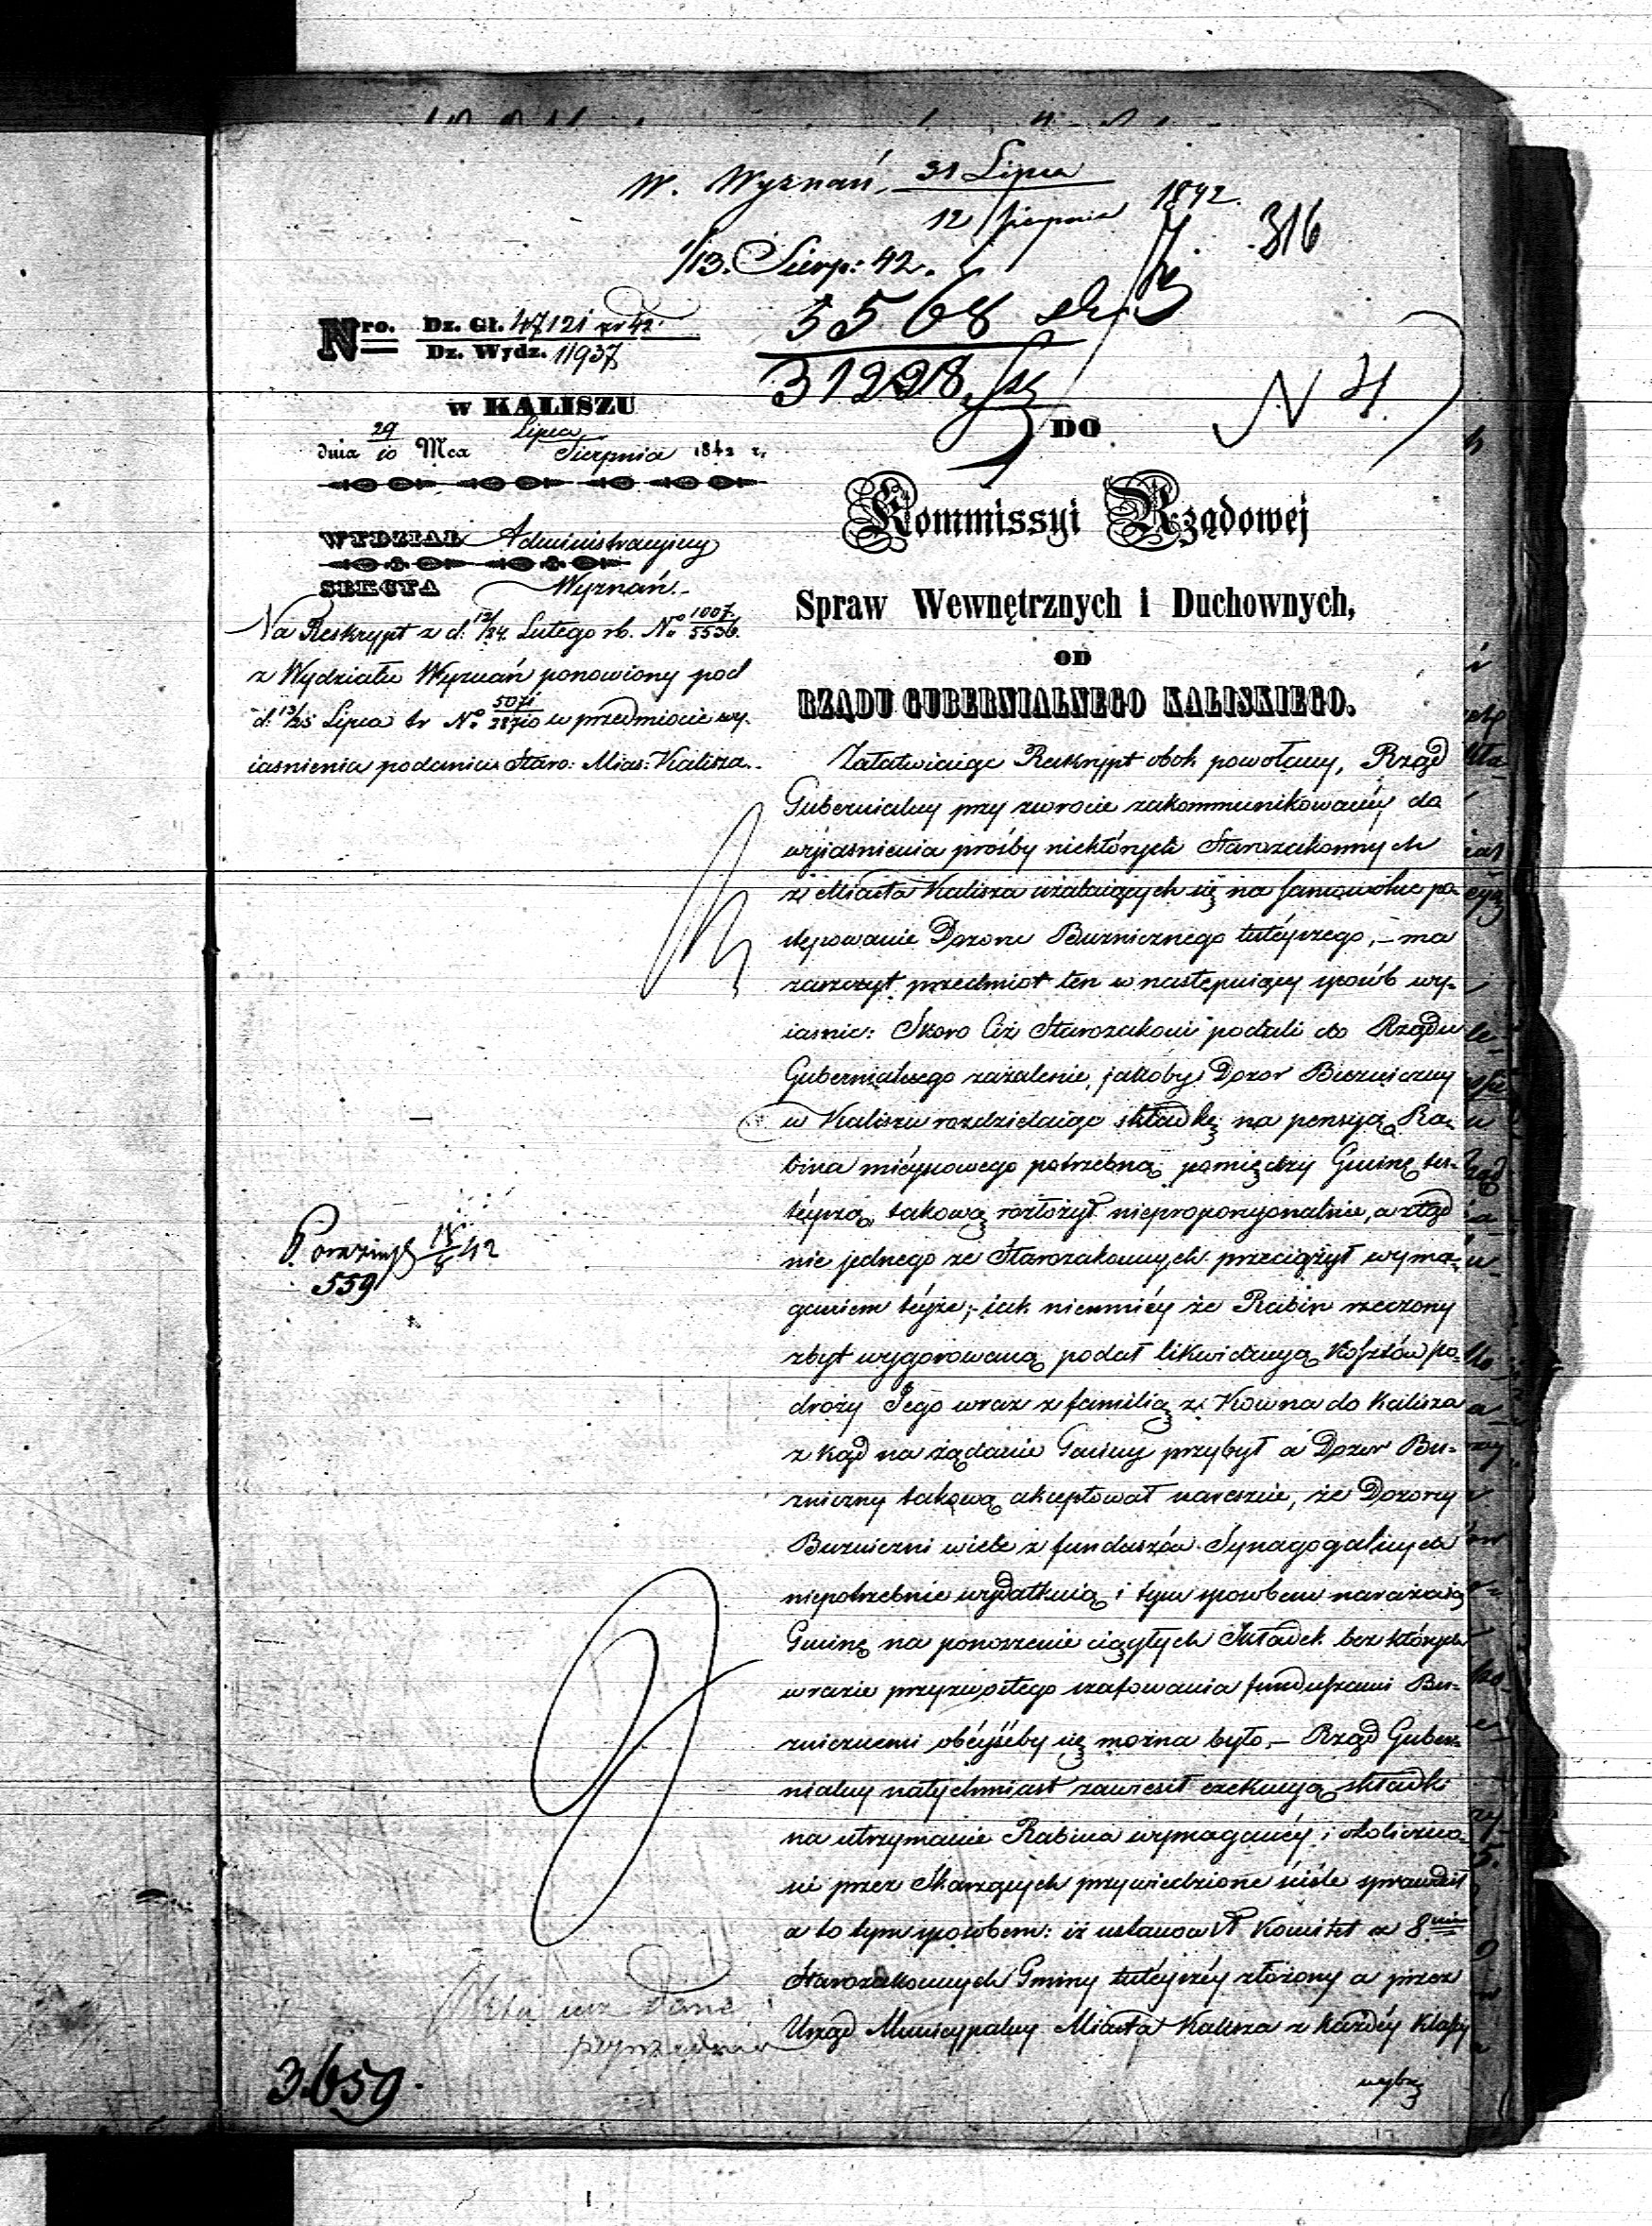 W. Wyznań 31 Lipca
12 Sierpnia 1842.
316
1/13. Sierp: 42.
5568
31228
N 4.
Nro. Dz. Gł. 47121
Dz. Wydz. 11937
w KALISZU
dnia 29/10 Mca Lipca/Sierpnia 1842 r.
WYDZIAŁ Administracyjny
SEKCYA Wyznań.
Na Reskrypt z d. 12/24 Lutego rb. No 1007/5536
z Wydziału Wyznań ponowiony pod
d. 13/25 Lipca br No 5071/28710 w przedmiocie wy-
iasnienia podania Staro: Mias: Kalisza.
DO
Kommissyi Rządowej
Spraw Wewnętrznych i Duchownych,
OD
RZĄDU GUBERNIALNEGO KALISKIEGO.
Załatwiaiąc Reskrypt obok powołany, Rząd
Gubernialny przy zwrocie zakommunikowanéy do
wyiasnienia prośby niektórych Starozakonnych
z Miasta Kalisza użalaiących się na samowolne po-
stępowanie Dozoru Bużnicznego tuteyszego, – ma
zaszczyt przedmiot ten w następuiący sposób wy-
iasnic: Skoro Ciż Starozakoni podali do Rządu
Gubernialnego zażalenie, jakoby Dozor Bużniczny
w Kaliszu rozdzielaiąc składkę na pensyą Ra-
bina mieyscowego potrzebną pomiędzy Gminę tu-
teyszą, takową rozłożył nieproporcyonalnie, a ztąd
nie jednego ze Starozakonnych przeciążył wyma-
ganiem téyże; – iak niemniéy że Rabin rzeczony
zbyt wygorowaną podał likwidacyą Kosztów po-
droży Jego wraz z familią z Kowna do Kalisza
z kąd na żądanie Gminy przybył a Dozor Bu-
żniczny takową akceptował nareszcie, że Dozorcy
Bużniczni wiele z funduszów Synagogalnych
niepotrzebnie wydatkuią i tym sposobem narażaią
Gminę na ponoszenie ciągłych Składek bez których
w razie przyzwoitego szafowania funduszami Bu-
żnicznemi obéyśćby się można było. – Rząd Guber-
nialny natychmiast zawiesił exekucyą składki
na utrzymanie Rabina wymaganéy i okoliczno-
ści przez Skarżących przywiedzione ściśle sprawdził
a to tym sposobem: iż ustanowił Komitet z 8miu
Starozakonnych Gminy tuteyszéy złożony a przez
Urząd Municypalny Miasta Kalisza z każdéy Klassy
wybra
559
3.659.